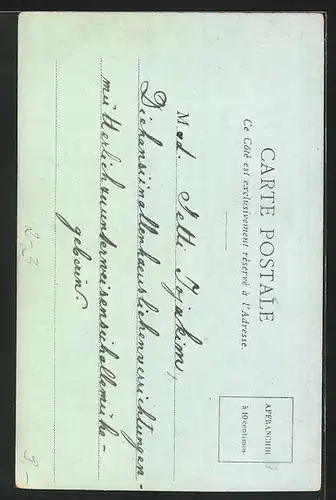 CARTE POSTALE
Ce Côté est exclusivement réservé à l'Adresse.
AFFRANCHIR
à 10 centimes
M ad. Jetti Jojakim,
Diehansiinallenhaeuslichenverrichtungen-
mütterlichzuunterweisensichallemühe-
geberin.